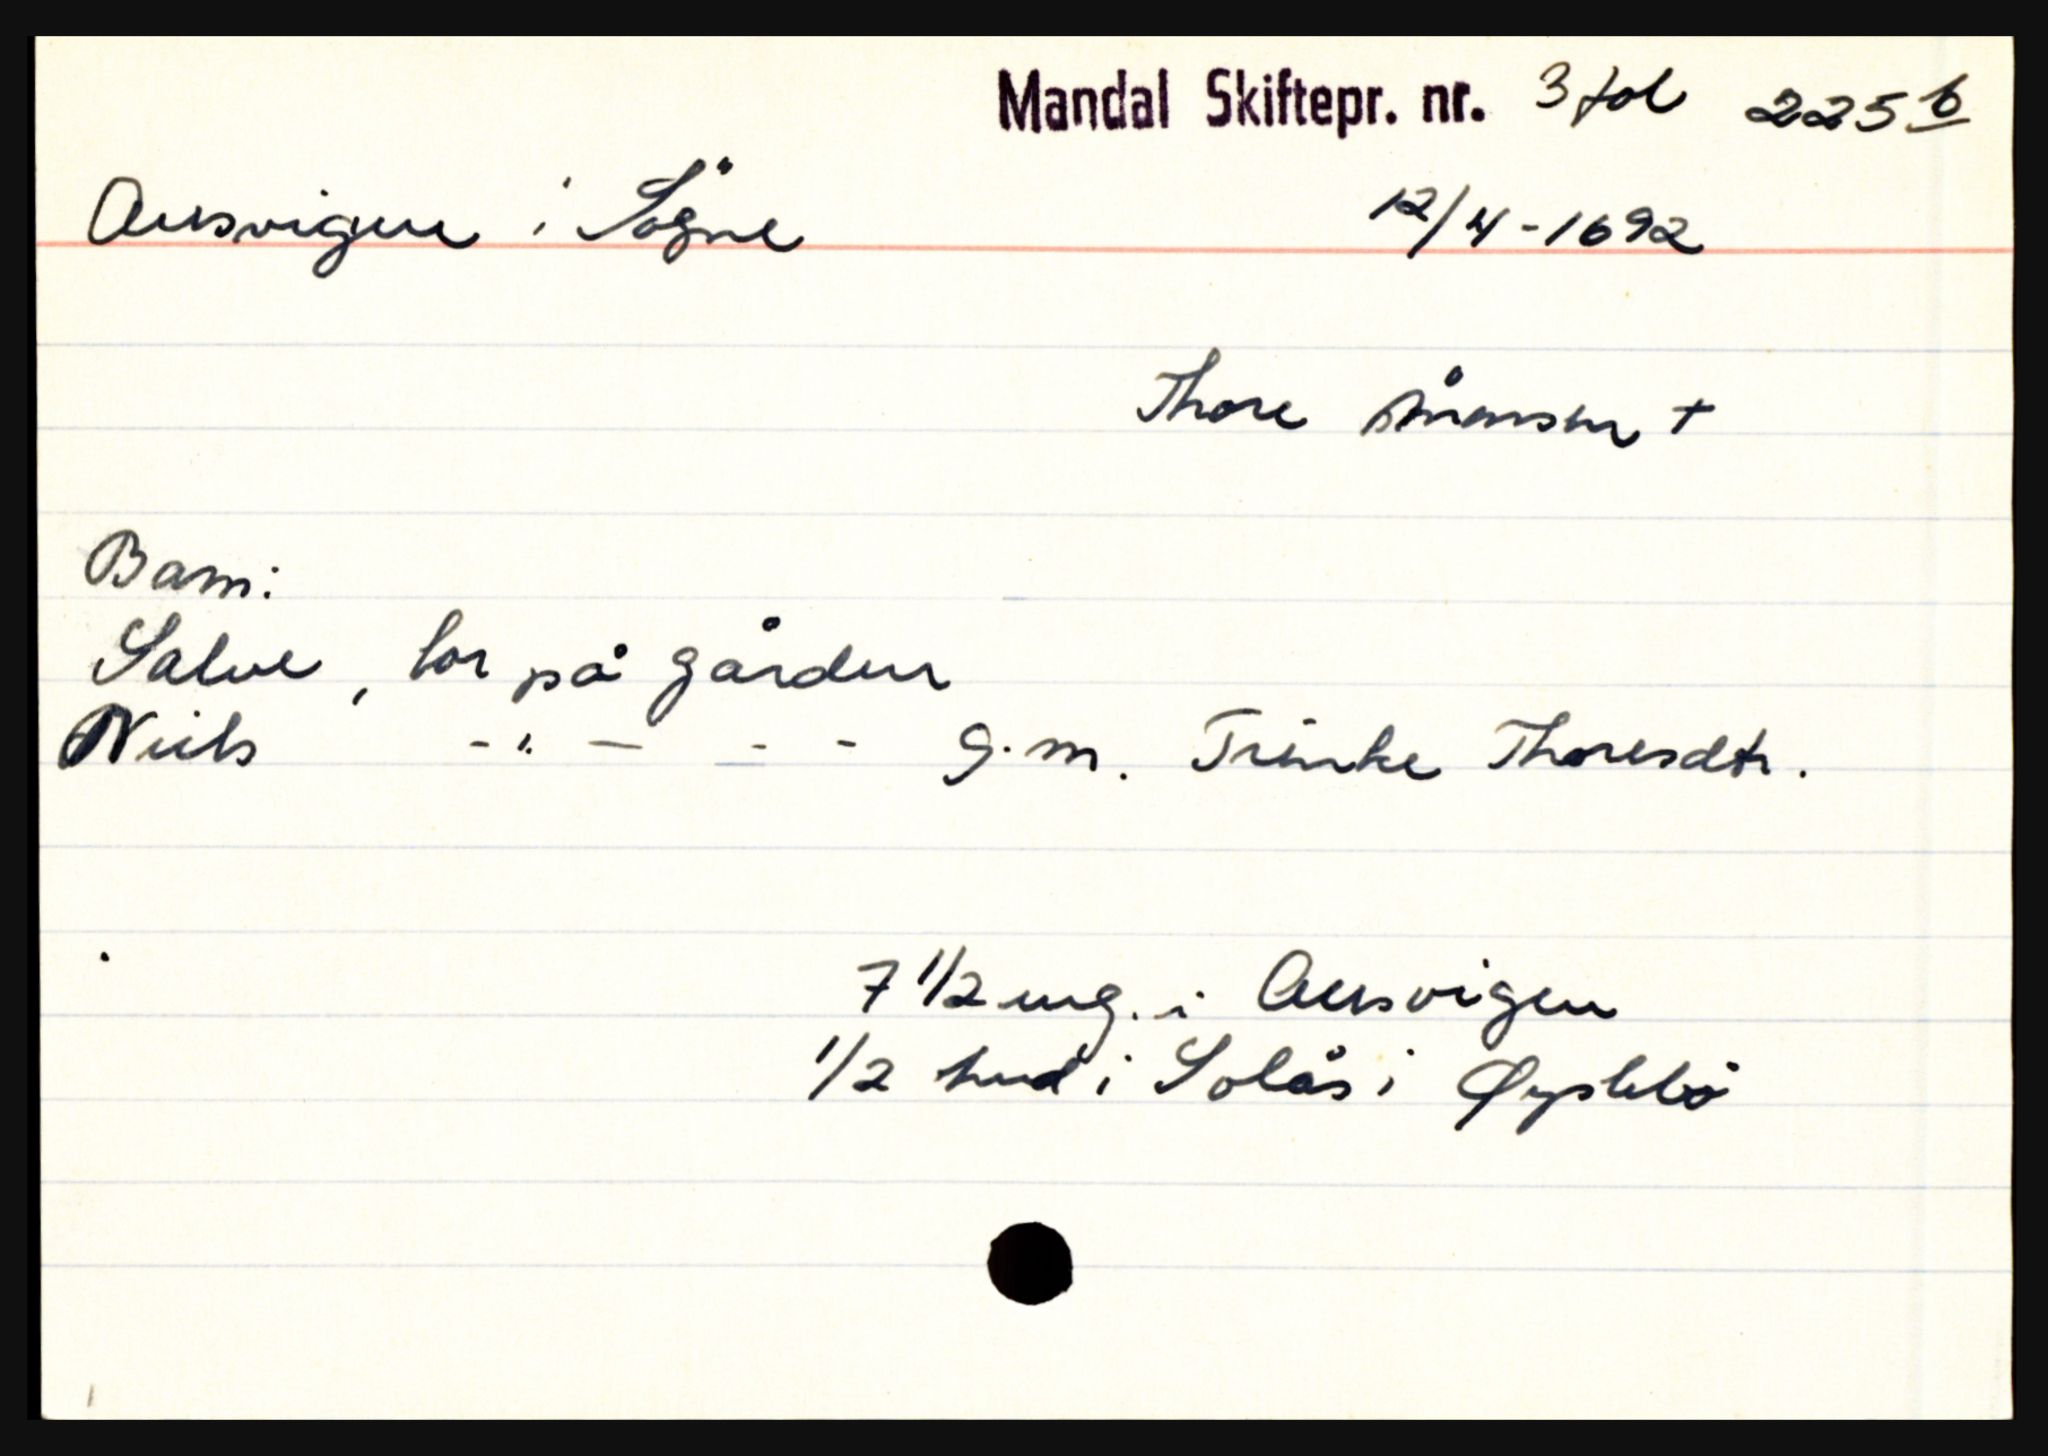 Mandal Skiftepr. nr. 3 fol 225 b
Ausvigen i Søgne 12/4-1692
Thore Ånensen +
Barn:
Salve, bor på gården
Niels -"- - - g.m. Trinke Thoresdtr.
7 1/2 mg. i Ausvigen
1/2 hud i Solås i Øyslebø